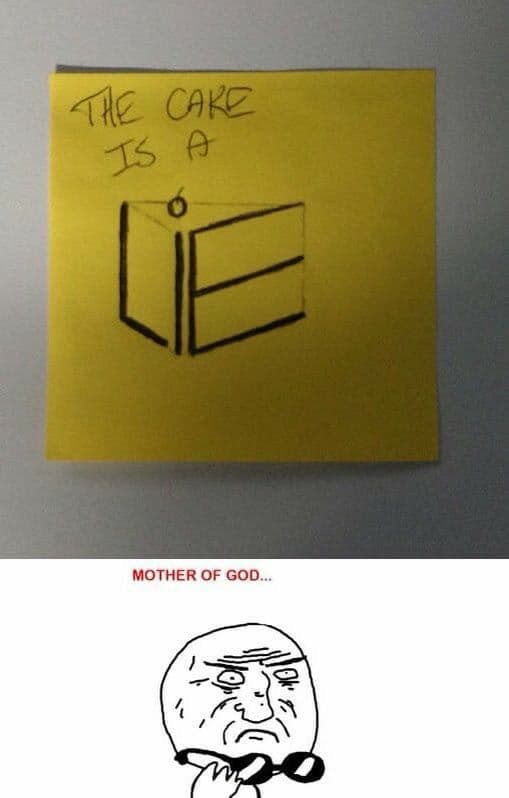 THE CAKE
IS A
LIE
MOTHER OF GOD...